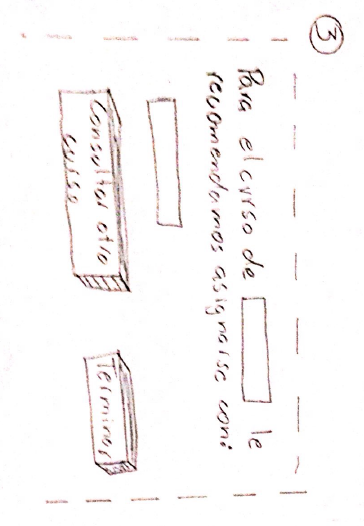 3
Para el curso de le
recomendamos asignarse con:
Consultar otro
curso
Terminar